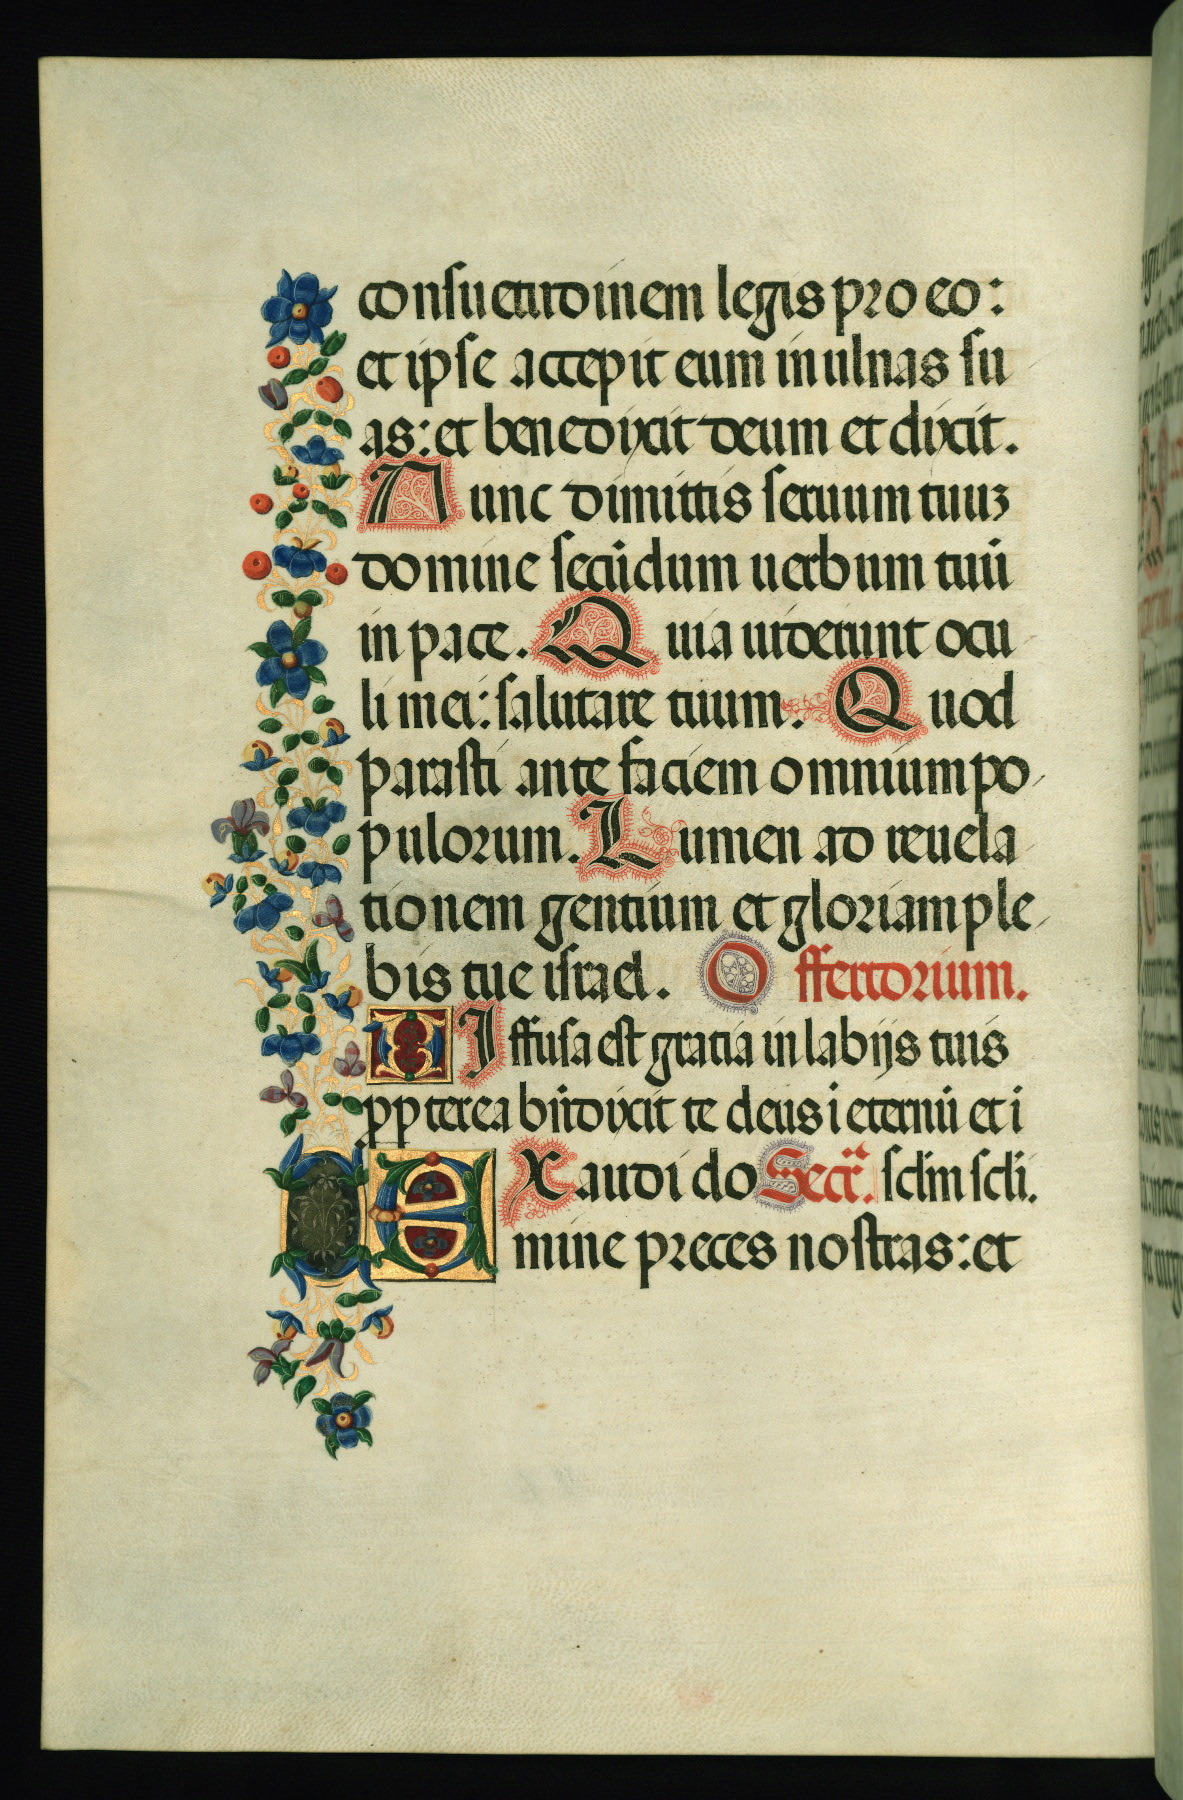 consuetudinem legis pro eo:
et ipse accepit eum in ulnas su
as: et benedixit deum et dixit.
Nunc dimittis seruum tuuz
domine secūdum uerbum tuū
in pace. Quia uiderunt ocu
li mei: salutare tuum. Quod
parasti ante faciem omnium po
pulorum. Lumen ad reuela
tionem gentium et gloriam ple
bis tue israel. Offertorium.
DIffusa est gratia in labijs tuis
ppterea bn̄dixit te deus i eternū et i
EXaudi do Secr̄. sclm̄ scli.
mine preces nostras: et